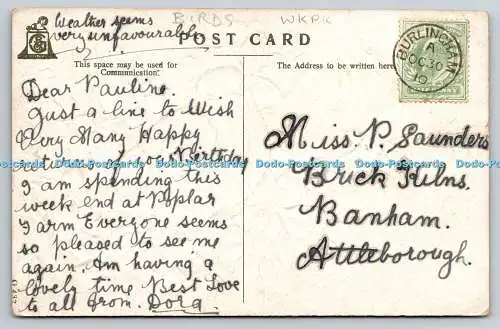 Weather seems
very unfavourable
BIRDS
WKPK
POST CARD
This space may be used for
Communication.
The Address to be written here.
BURLINGHAM
A
OC 30
10
HALFPENNY
Dear Pauline
Just a line to Wish
Very Many Happy
returns of your Birthday
I am spending this
week end at Poplar
Farm Everyone seems
so pleased to see me
again. Am having a
lovely time Best Love
to all from. Dora
Miss. P. Saunders
Brick Kilns.
Banham.
Attleborough.
Dodo-Postcards Dodo-Postcards Dodo-Postcards Dodo-Postcards Dodo-Postcards